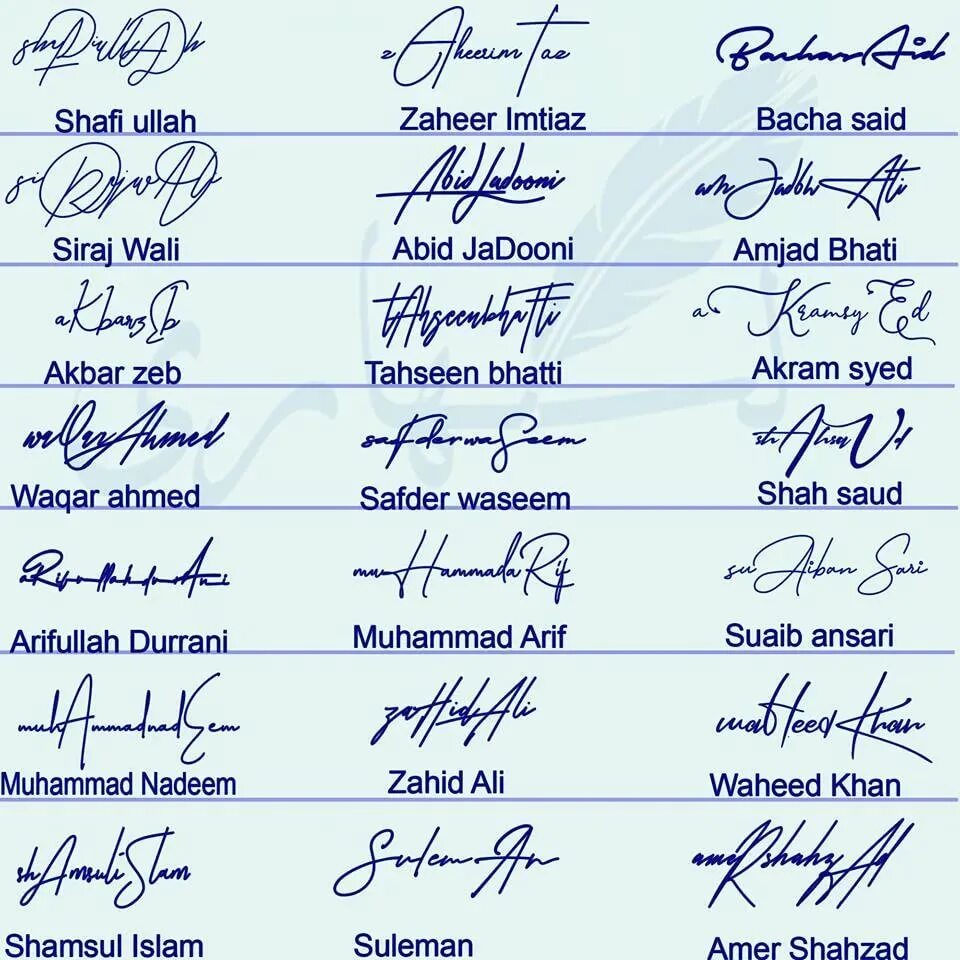 zAheerimTaz
Shafi ullah Zaheer Imtiaz Bacha said
AbidJadooni
Siraj Wali Abid JaDooni Amjad Bhati
aKbarzEb tAhseenbhaTti aKramsyEd
Akbar zeb Tahseen bhatti Akram syed
waQarAhmed safderwaSeem
Waqar ahmed Safder waseem Shah saud
muHammadaRif suAibanSari
Arifullah Durrani Muhammad Arif Suaib ansari
muhAmmadnadEem zaHidAli waHeedKhan
Muhammad Nadeem Zahid Ali Waheed Khan
shAmsuliSlam SulemAn ameRshahzAd
Shamsul Islam Suleman Amer Shahzad